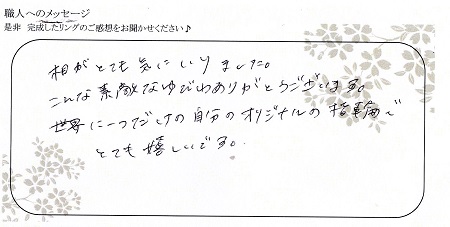 職人へのメッセージ
是非 完成したリングのご感想をお聞かせください♪
相がとても気にいりました。
こんな素敵なゆびわありがとうございます。
世界に一つだけの自分のオリジナルの指輪で
とても嬉しいです。